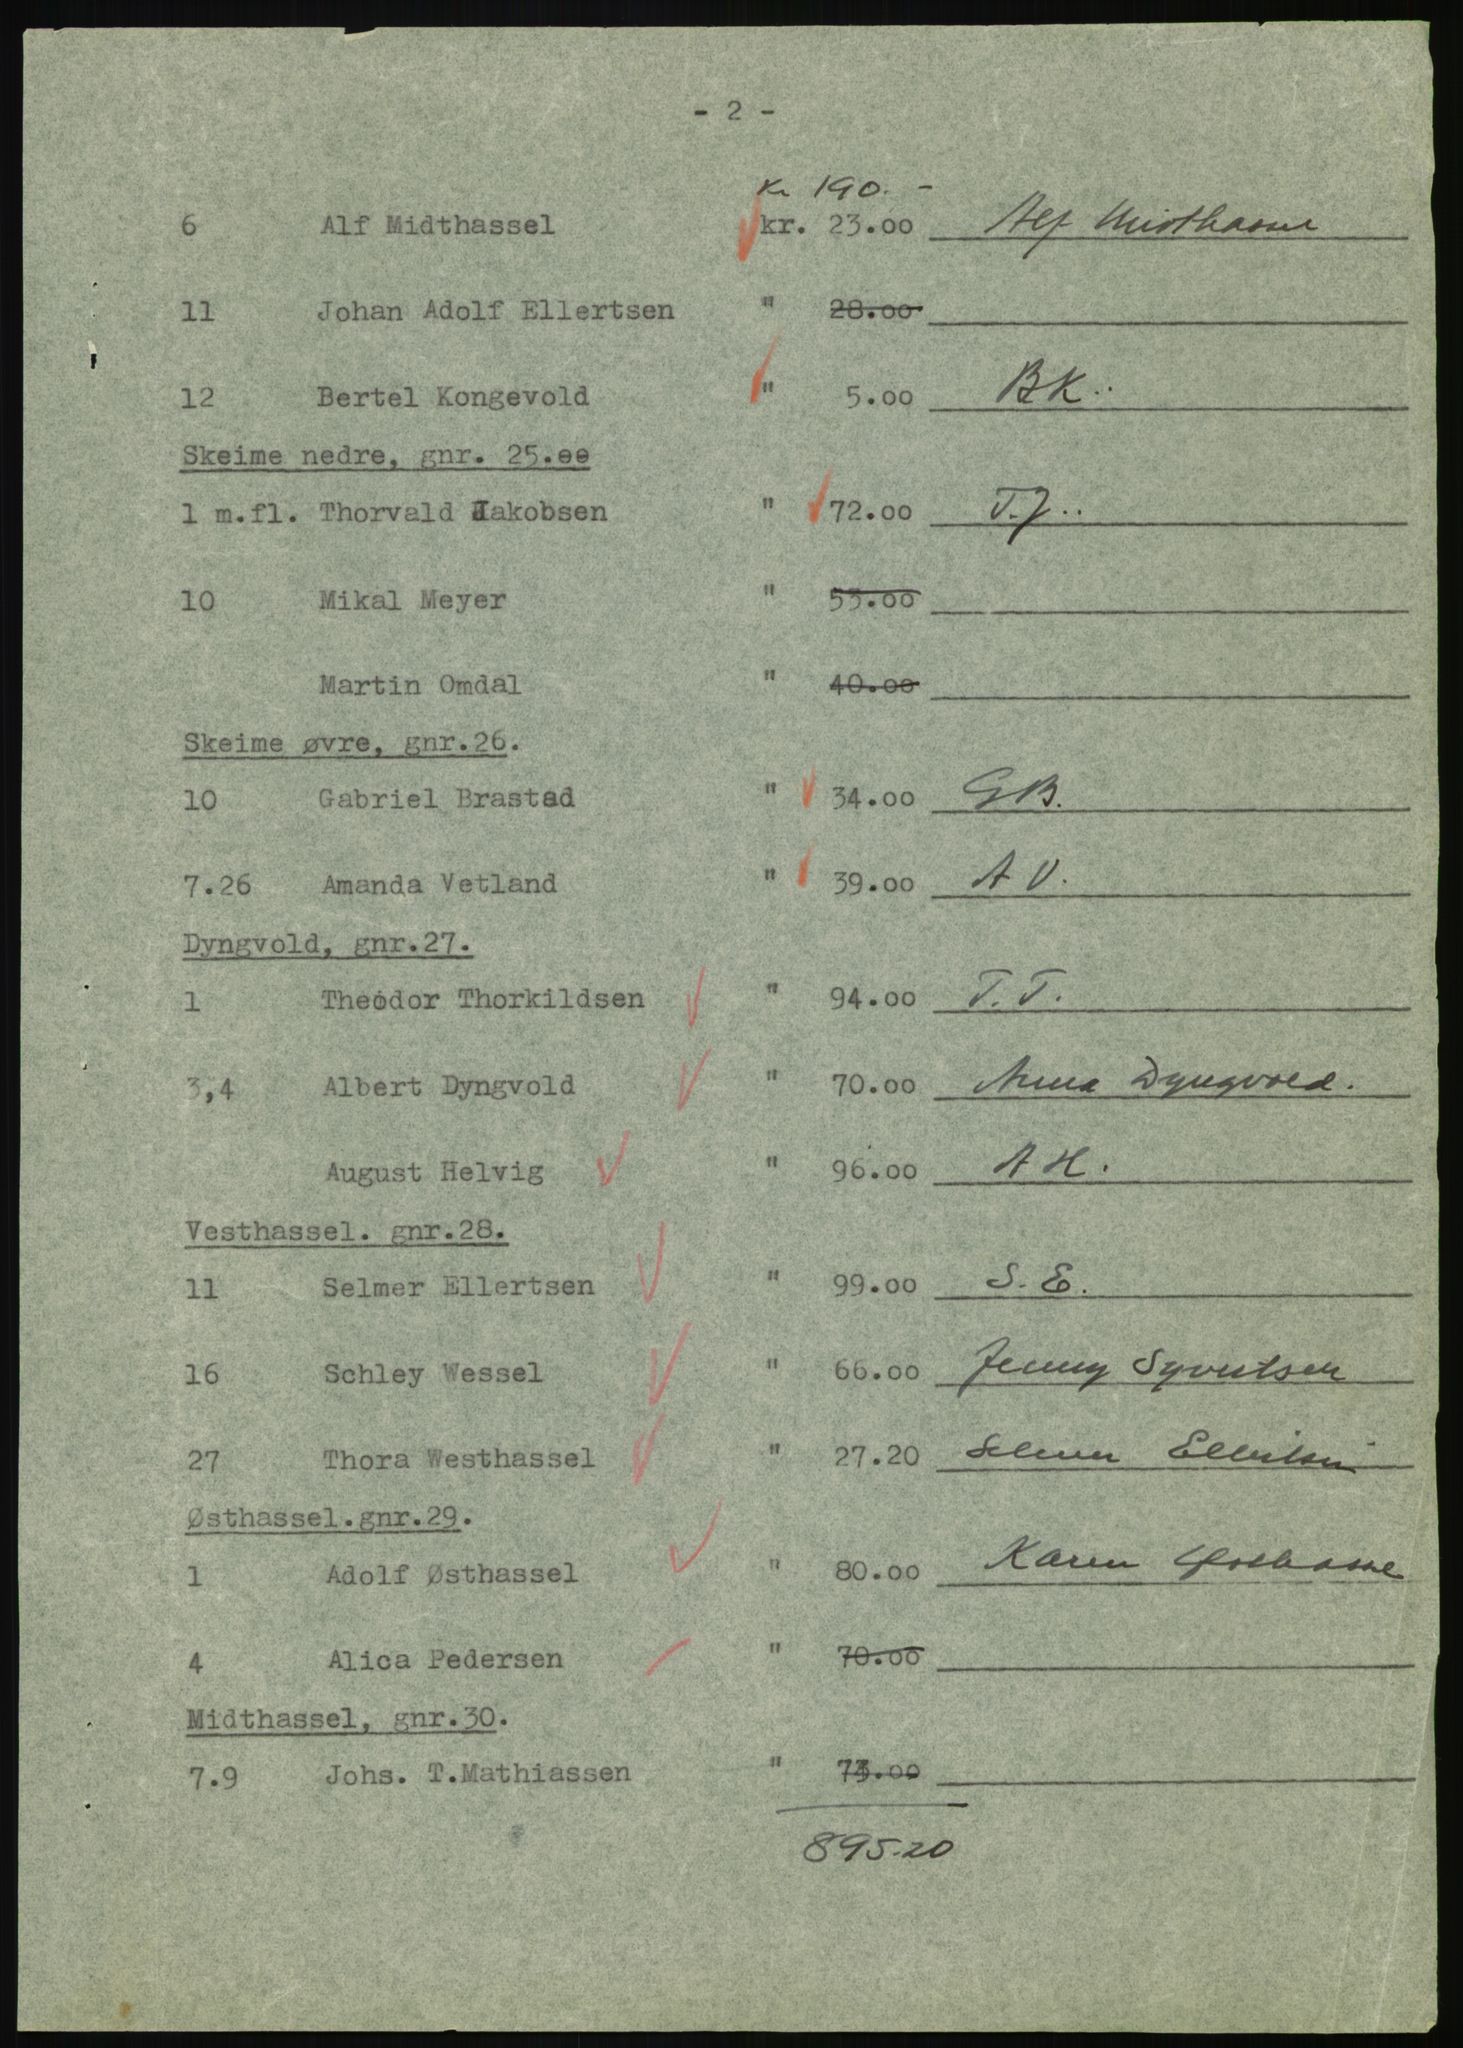 - 2 -
Kr 190. -
6 Alf Midthassel kr. 23.00 Alf Midthassel
11 Johan Adolf Ellertsen " 28.00
12 Bertel Kongevold " 5.00 BK..
Skeime nedre, gnr. 25.
1 m.fl. Thorvald Jakobsen " 72.00 T.J..
10 Mikal Meyer " 53.00
Martin Omdal " 40.00
Skeime øvre, gnr.26.
10 Gabriel Brastad " 34.00 GB.
7.26 Amanda Vetland " 39.00 A V.
Dyngvold, gnr.27.
1 Theodor Thorkildsen " 94.00 T. T.
3,4 Albert Dyngvold " 70.00 Anna Dyngvold.
August Helvig " 96.00 A H.
Vesthassel. gnr.28.
11 Selmer Ellertsen " 99.00 S. E.
16 Schley Wessel " 66.00 Jenny Syvertsen
27 Thora Westhassel " 27.20 Selmer Ellertsen
Østhassel.gnr.29.
1 Adolf Østhassel " 80.00 Karen Østhassel
4 Alica Pedersen " 70.00
Midthassel, gnr.30.
7.9 Johs. T.Mathiassen " 73.00
895.20